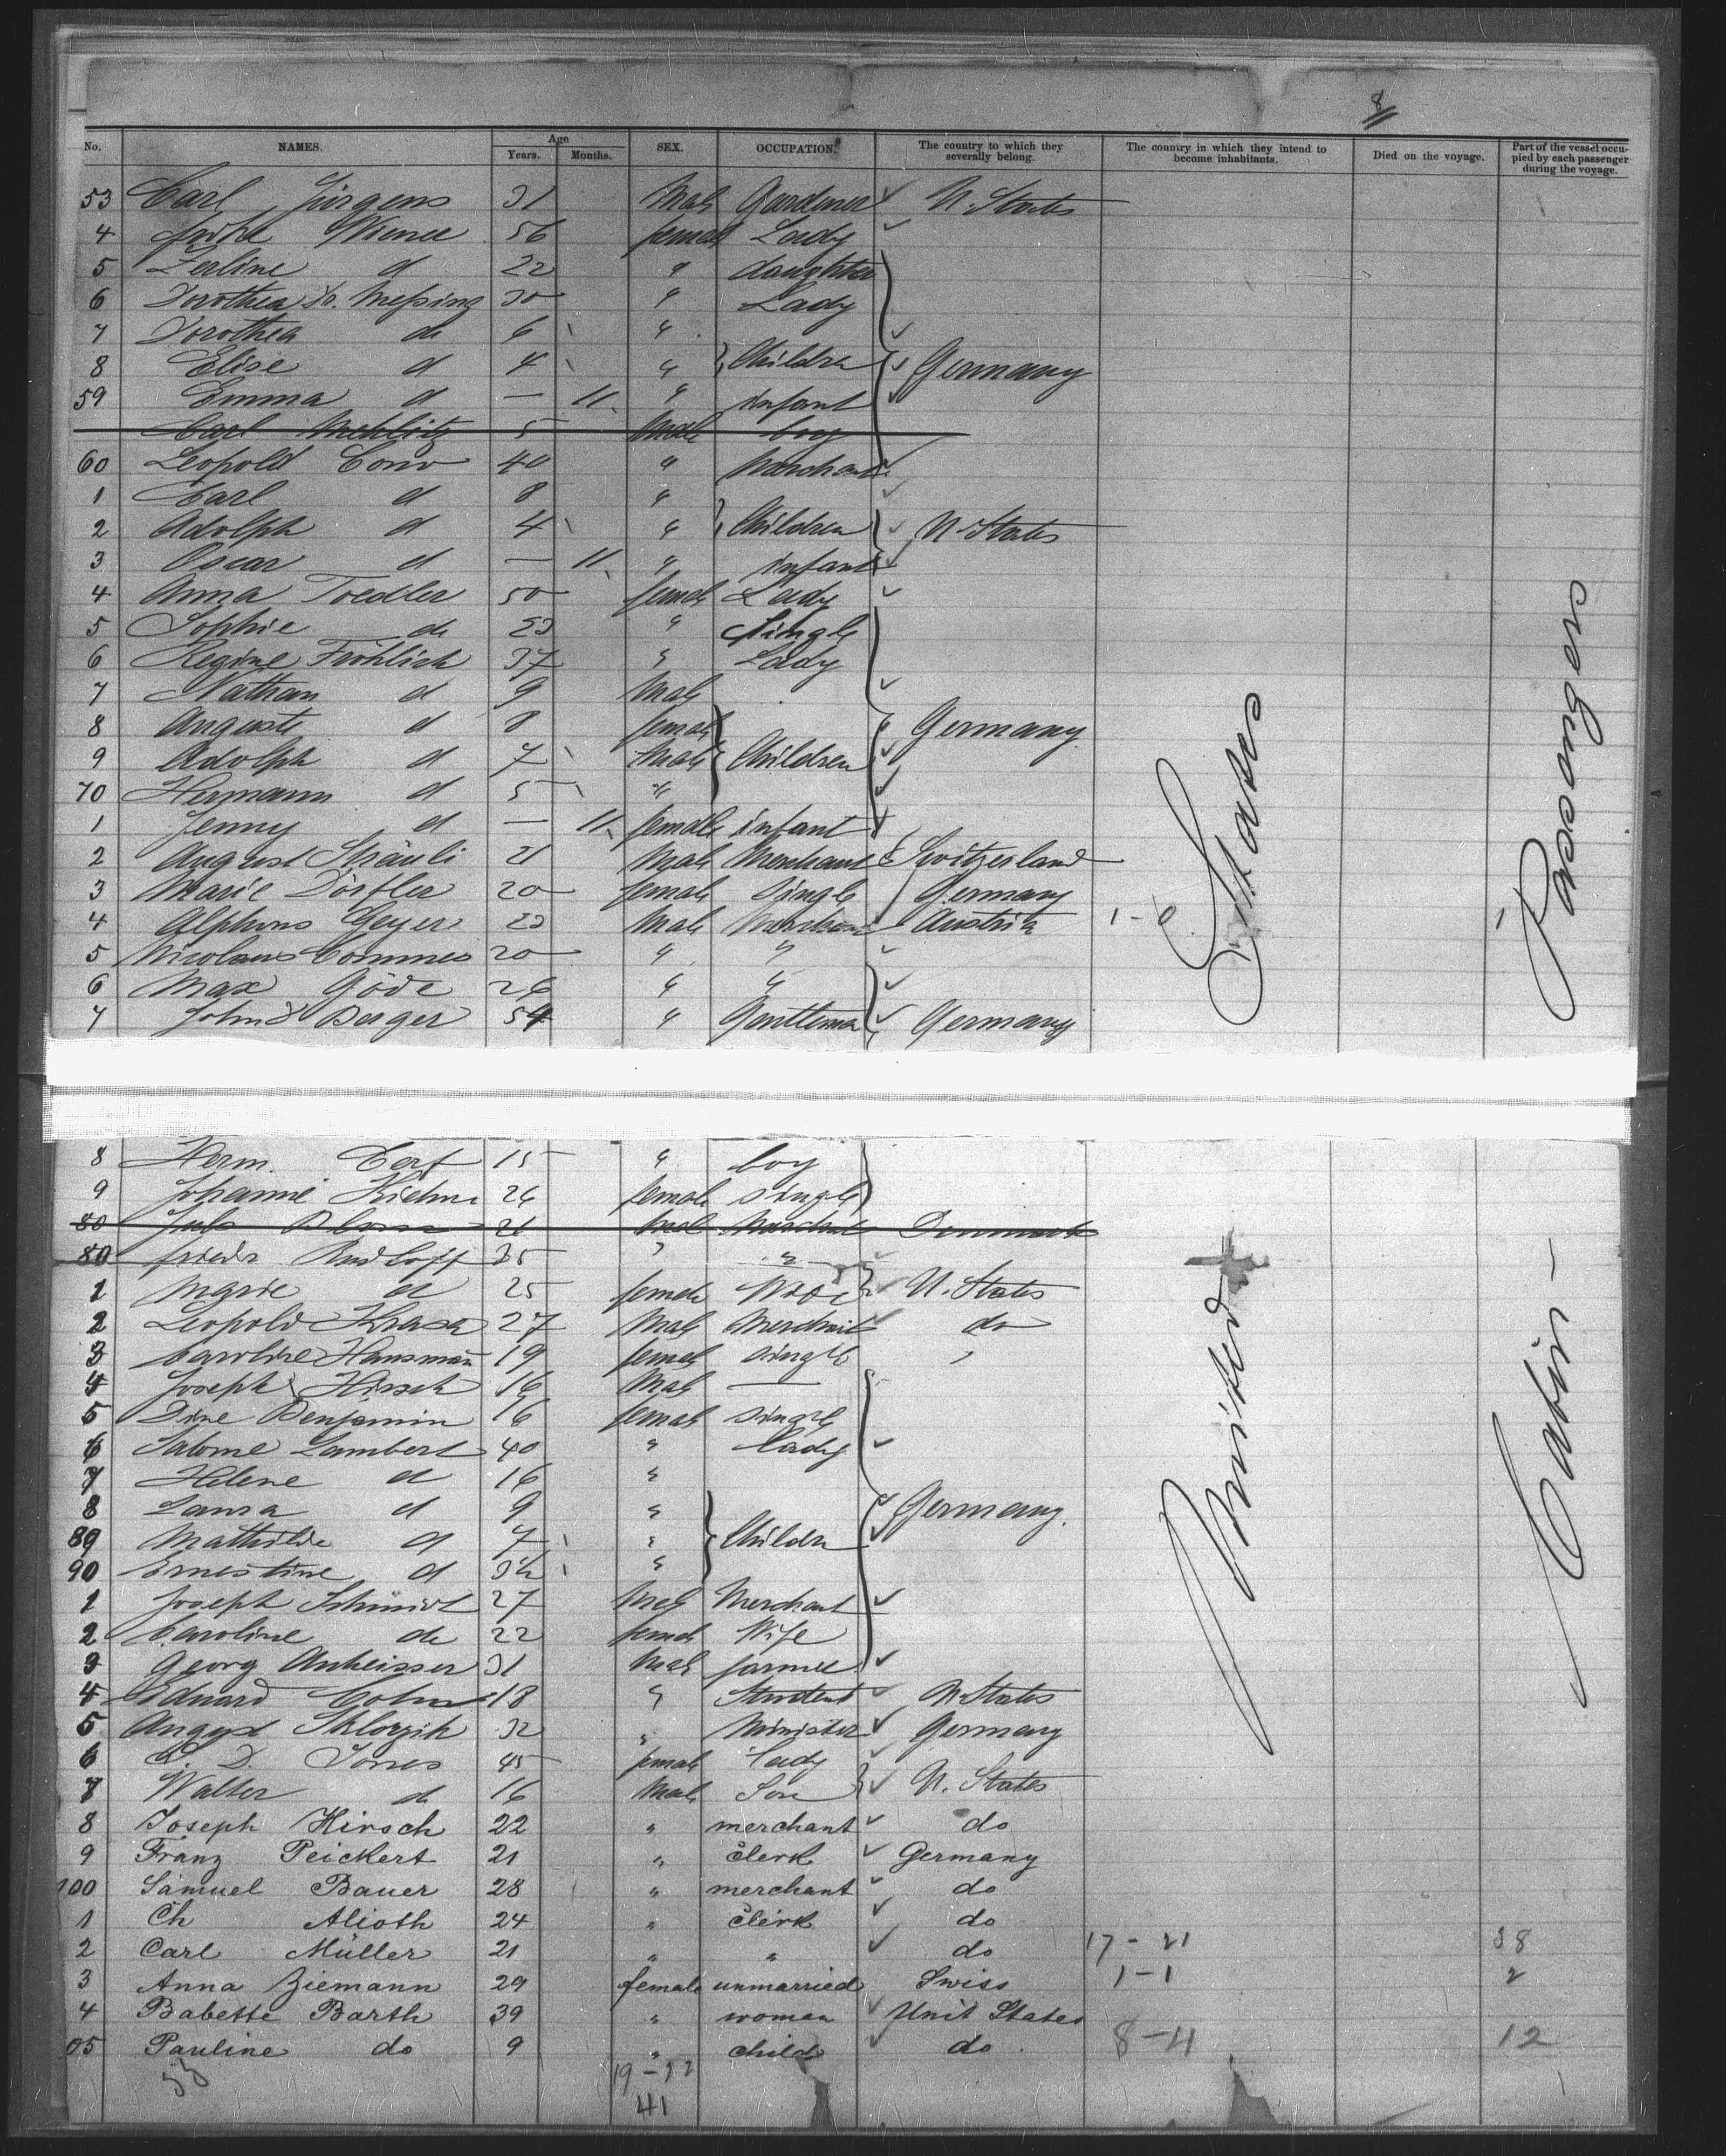 8
No. NAMES. Age Years. Months. SEX. OCCUPATION. The country to which they severally belong. The country in which they intend to become inhabitants. Died on the voyage. Part of the vessel occupied by each passenger during the voyage.
53 Carl Jürgens 31 Male Gardener U. States
4 Wiener 56 female Lady
5 Zerline d 22 " daughter
6 Dorothea Messing 30 " Lady
7 Dorothea do 6 "
8 Elise d 4 " Children Germany
59 Emma d — 11 " infant
Carl Mehlitz 5 Male boy
60 Leopold Conv 40 " Merchant
1 Carl d 8 "
2 Adolph d 4 " Children U. States
3 Oscar d — 11 " infant
4 Anna Toedler 50 female Lady
5 Sophie do 23 " Single
6 Regine Fröhlich 37 " Lady
7 Nathan d 9 Male
8 Auguste d 8 female Germany
9 Adolph d 7 Male Children
70 Hermann d 5 "
1 Jenny d — 11 female infant
2 August Sträuli 21 Male Merchant Switzerland
3 Marie Dörfler 20 female Single Germany
4 Alphons Geyer 23 Male Merchant Austria 1-0 1
5 Nicolaus Commes 20 " "
6 Max Göde 26 " "
7 John Berger 54 " Gentleman Germany
8 Herm. Cerf 15 " boy
9 Johanne Kiehne 26 female single
80 26 Male Merchant Denmark
80 Friedr Rudloff 35 " "
1 Marie d 25 female Wife U. States
2 Leopold Krasa 27 Male Merchant do
3 Caroline Hausmann 19 female single "
4 Joseph Hirsch 16 Male —
5 Dine Benjamin 16 female single
6 Salome Lambert 40 " Lady
7 Helene d 16 "
8 Laura d 9 " Germany.
89 Mathilde d 7 " Children
90 Ernestine d "
1 Joseph Schmidt 27 Male Merchant
2 Caroline do 22 female Wife
3 Georg Anheisser 31 Male farmer
4 Eduard Cohn 18 " Student U. States
5 August Sklorzik 32 " Minister Germany
6 C. D. Jones 45 female Lady
7 Walter do 16 Male Son U. States
8 Joseph Hirsch 22 " merchant do
9 Franz Peickert 21 " clerk Germany
100 Samuel Bauer 28 " merchant do
1 Ch Alioth 24 " clerk do
2 Carl Müller 21 " " do 17-21 38
3 Anna Ziemann 29 female unmarried Swiss 1-1 2
4 Babette Barth 39 " woman Unit States
05 Pauline do 9 " child do 8-4 12
53 19-22
41
United States
Cabin Passengers